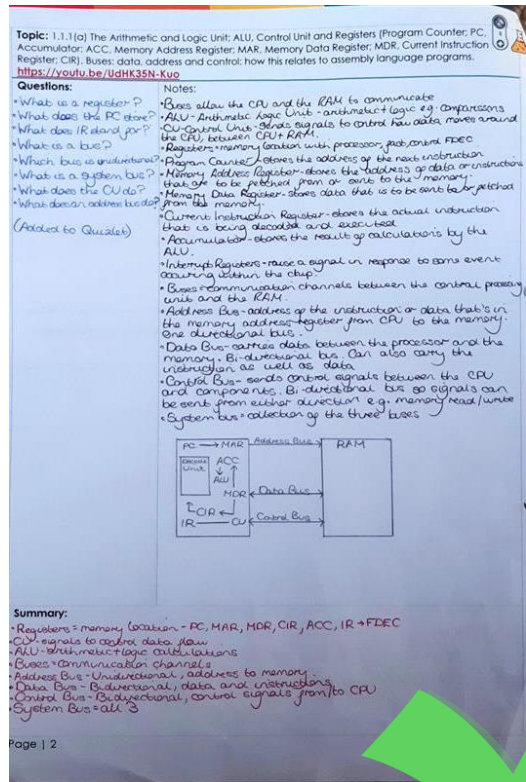 Topic: 1.1.1(a) The Arithmetic and Logic Unit; ALU, Control Unit and Registers (Program Counter; PC,
Accumulator; ACC, Memory Address Register; MAR, Memory Data Register; MDR, Current Instruction
Register; CIR). Buses: data, address and control: how this relates to assembly language programs.
https://youtu.be/UdHK35N-Kuo
Questions:
•What is a register?
•What does the PC store?
•What does IR stand for?
•What is a bus?
•Which bus is unidirectional?
•What is a system bus?
•What does the CU do?
•What does an address bus do?
(Added to Quizlet)
Notes:
•Buses allow the CPU and the RAM to communicate
•ALU - Arithmetic Logic Unit - arithmetic + logic e.g. comparisons
•CU - Control Unit - sends signals to control how data moves around
the CPU, between CPU + RAM.
•Registers = memory location with processor, fast, control FDEC
•Program Counter - stores the address of the next instruction
•Memory Address Register - stores the address of data or instructions
that are to be fetched from or sent to the memory.
•Memory Data Register - stores data that is to be sent to or fetched
from the memory.
•Current Instruction Register - stores the actual instruction
that is being decoded and executed
•Accumulator - stores the result of calculations by the
ALU.
•Interrupt Registers - raise a signal in response to some event
occuring within the chip
•Buses = communication channels between the central processing
unit and the RAM.
•Address Bus - address of the instruction or data that's in
the memory address register from CPU to the memory.
One directional bus.
•Data Bus - carries data between the processor and the
memory. Bi-directional bus. Can also carry the
instruction as well as data
•Control Bus - sends control signals between the CPU
and components. Bi-directional bus so signals can
be sent from either direction e.g. memory read/write
•System bus = collection of the three buses
PC → MAR Address Bus RAM
Unit ACC
ALU
MDR Data Bus
CIR
IR CU Control Bus
Summary:
•Registers = memory location - PC, MAR, MDR, CIR, ACC, IR → FDEC
•CU - signals to control data flow
•ALU - arithmetic + logic calculations
•Buses = communication channels
•Address Bus - Unidirectional, address to memory
•Data Bus - Bidirectional, data and instructions
•Control Bus - Bidirectional, control signals from/to CPU
•System Bus = all 3
Page | 2